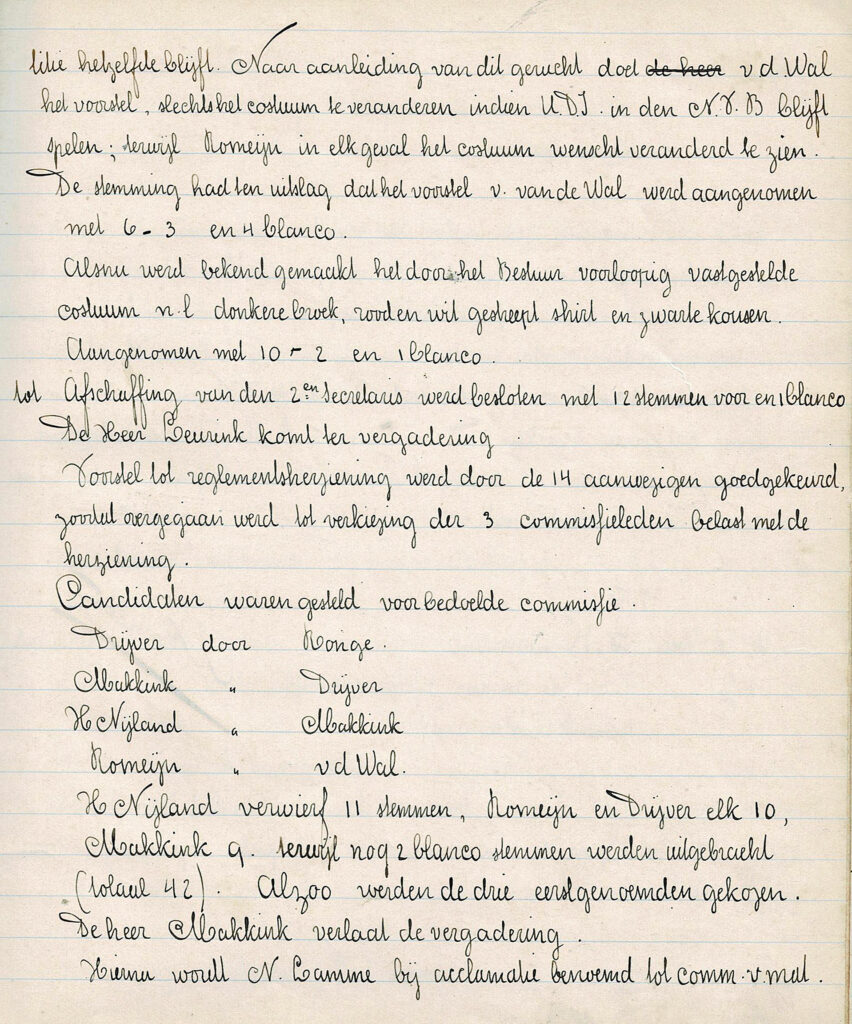 titie hetzelfde blijft. Naar aanleiding van dit gerucht doet de heer v d Wal
het voorstel, slechts het costuum te veranderen indien U.D.I. in den N.V.B blijft
spelen; terwijl Romeijn in elk geval het costuum wenscht veranderd te zien.
De stemming had ten uitslag dat het voorstel v. van de Wal werd aangenomen
met 6 - 3 en 4 blanco.
Alsnu werd bekend gemaakt het door het Bestuur voorloopig vastgestelde
costuum n.l donkere broek, rood en wit gestreept shirt en zwarte kousen.
Aangenomen met 10 - 2 en 1 blanco.
tot Afschaffing van den 2en Secretaris werd besloten met 12 stemmen voor en 1 blanco
De Heer Leurink komt ter vergadering
Voorstel tot reglementsherziening werd door de 14 aanwezigen goedgekeurd,
zoodat overgegaan werd tot verkiezing der 3 commissieleden belast met de
herziening.
Candidaten waren gesteld voor bedoelde commissie.
Drijver door Ronge.
Makkink " Drijver
H Nijland " Makkink
Romeijn " v d Wal.
H Nijland verwierf 11 stemmen, Romeijn en Drijver elk 10,
Makkink 9. terwijl nog 2 blanco stemmen werden uitgebracht
(totaal 42). Alzoo werden de drie eerstgenoemden gekozen.
De heer Makkink verlaat de vergadering.
Hierna wordt N. Lamme bij acclamatie benoemd tot comm. v. mat.